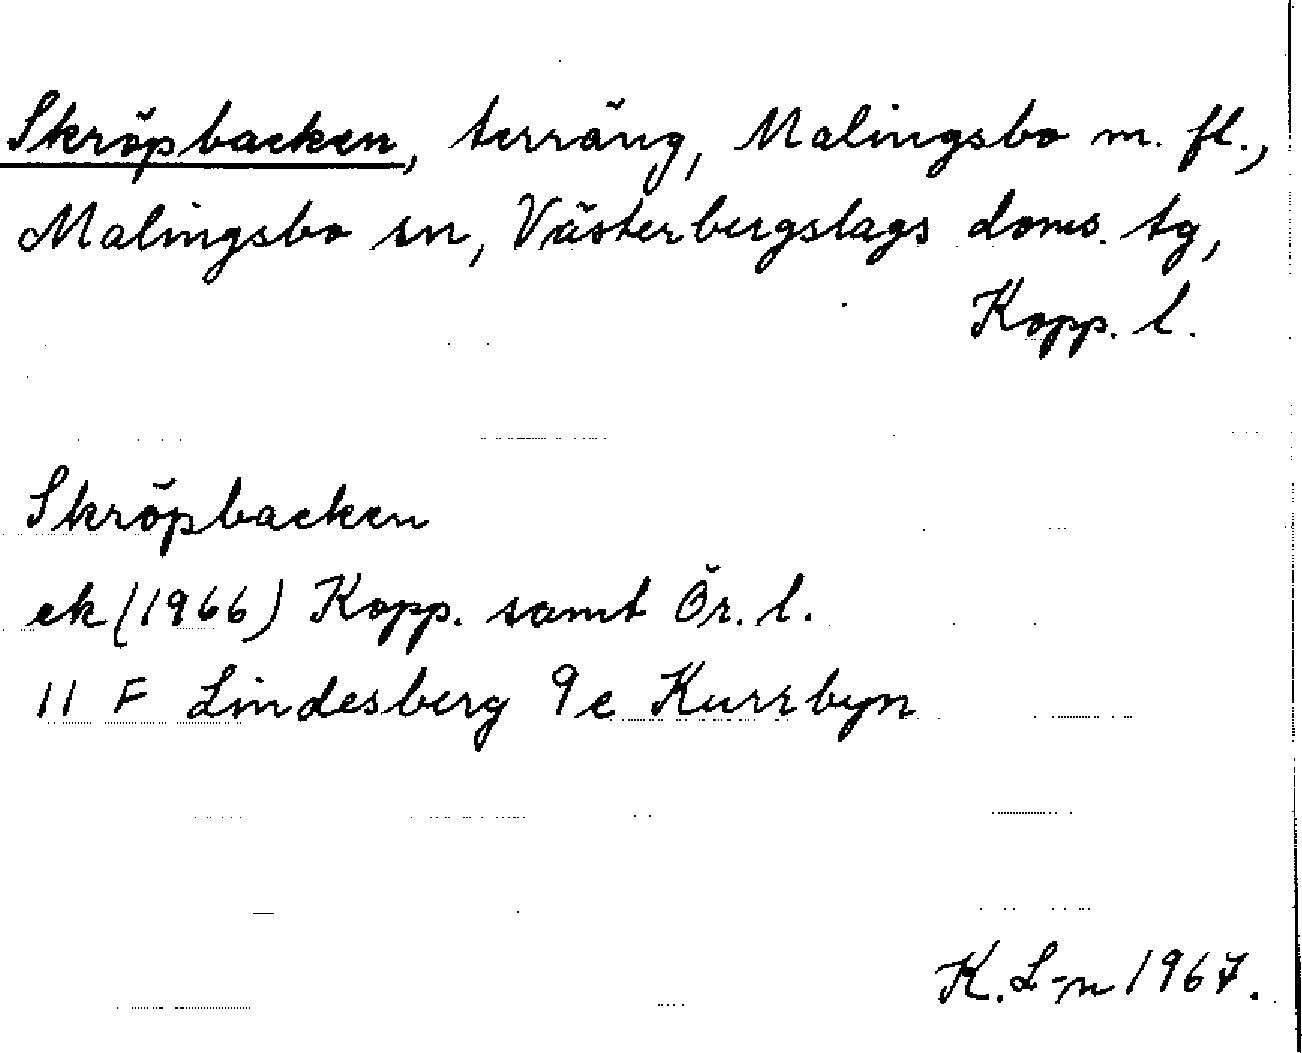 Skröpbacken, terräng, Malingsbo m. fl.,
Malingsbo sn, Västerbergslags doms. tg,
Kopp. l.
Skröpbacken
ek (1966) Kopp. samt Ör. l.
11 F Lindesberg 9e Kurrbyn
K. L-n 1967.